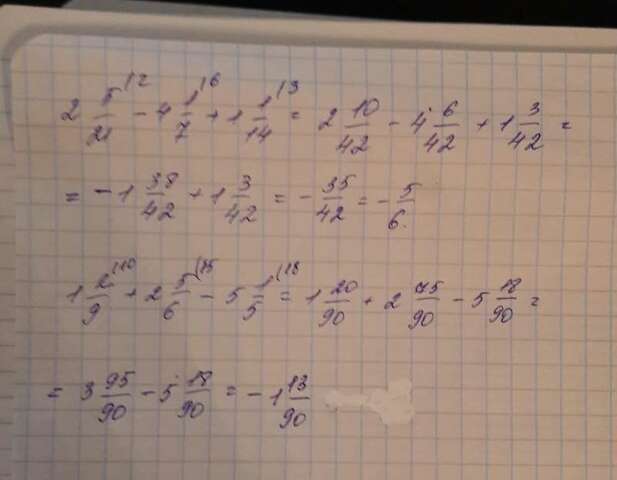 2 5/21 |2 - 4 1/7 |6 + 1 1/14 |3 = 2 10/42 - 4 6/42 + 1 3/42 =
= -1 38/42 + 1 3/42 = - 35/42 = - 5/6.
1 2/9 |10 + 2 5/6 |15 - 5 1/5 |18 = 1 20/90 + 2 75/90 - 5 18/90 =
= 3 95/90 - 5 18/90 = -1 13/90